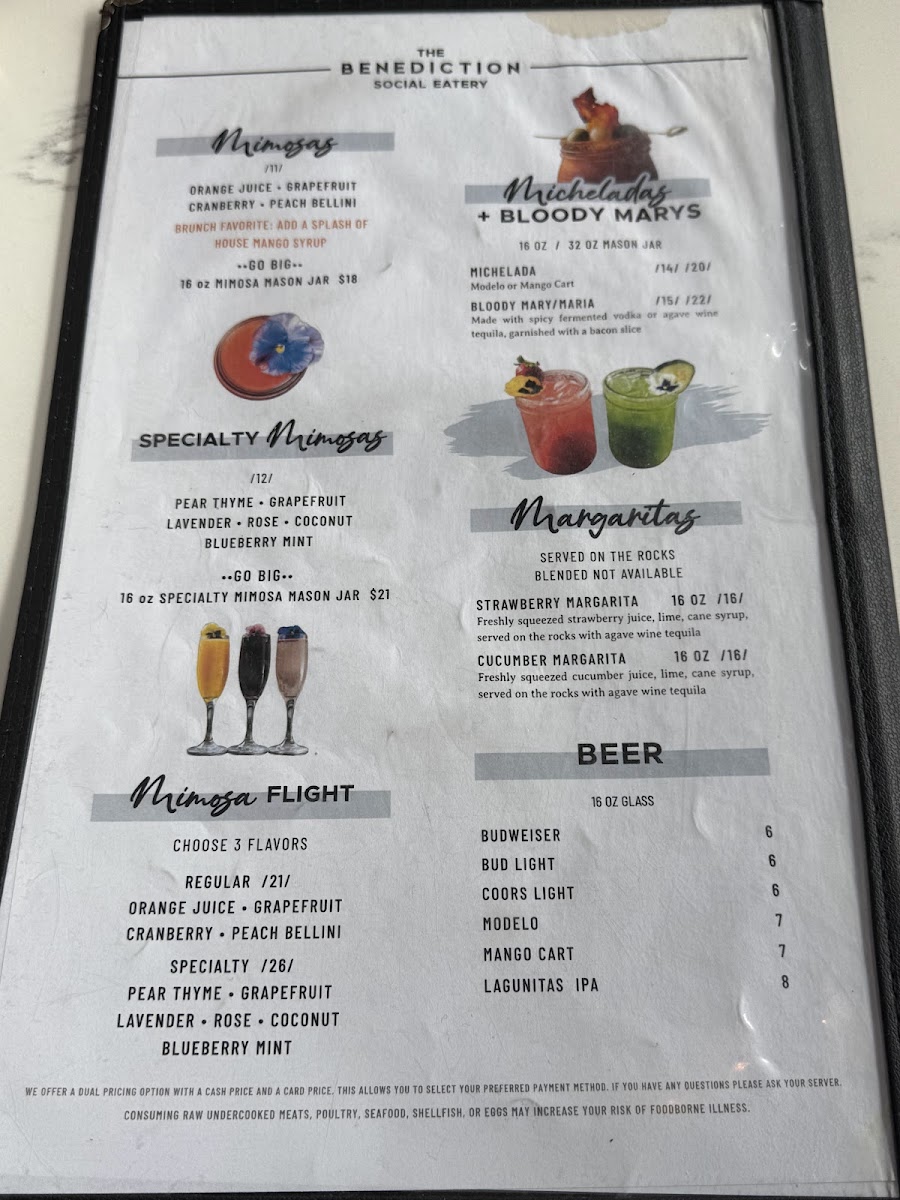 THE
BENEDICTION
SOCIAL EATERY
Mimosas
/11/
ORANGE JUICE • GRAPEFRUIT
CRANBERRY • PEACH BELLINI
BRUNCH FAVORITE: ADD A SPLASH OF
HOUSE MANGO SYRUP
••GO BIG••
16 oz MIMOSA MASON JAR $18
SPECIALTY Mimosas
/12/
PEAR THYME • GRAPEFRUIT
LAVENDER • ROSE • COCONUT
BLUEBERRY MINT
••GO BIG••
16 oz SPECIALTY MIMOSA MASON JAR $21
Mimosa FLIGHT
CHOOSE 3 FLAVORS
REGULAR /21/
ORANGE JUICE • GRAPEFRUIT
CRANBERRY • PEACH BELLINI
SPECIALTY /26/
PEAR THYME • GRAPEFRUIT
LAVENDER • ROSE • COCONUT
BLUEBERRY MINT
Micheladas
+ BLOODY MARYS
16 OZ / 32 OZ MASON JAR
MICHELADA /14/ /20/
Modelo or Mango Cart
BLOODY MARY/MARIA /15/ /22/
Made with spicy fermented vodka or agave wine
tequila, garnished with a bacon slice
Margaritas
SERVED ON THE ROCKS
BLENDED NOT AVAILABLE
STRAWBERRY MARGARITA 16 OZ /16/
Freshly squeezed strawberry juice, lime, cane syrup,
served on the rocks with agave wine tequila
CUCUMBER MARGARITA 16 OZ /16/
Freshly squeezed cucumber juice, lime, cane syrup,
served on the rocks with agave wine tequila
BEER
16 OZ GLASS
BUDWEISER 6
BUD LIGHT 6
COORS LIGHT 6
MODELO 7
MANGO CART 7
LAGUNITAS IPA 8
WE OFFER A DUAL PRICING OPTION WITH A CASH PRICE AND A CARD PRICE. THIS ALLOWS YOU TO SELECT YOUR PREFERRED PAYMENT METHOD. IF YOU HAVE ANY QUESTIONS PLEASE ASK YOUR SERVER.
CONSUMING RAW UNDERCOOKED MEATS, POULTRY, SEAFOOD, SHELLFISH, OR EGGS MAY INCREASE YOUR RISK OF FOODBORNE ILLNESS.